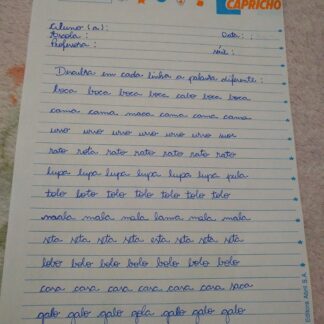 CAPRICHO
Aluno (a) :
Escola : Data : :
Professora : série :
Descubra em cada linha a palavra diferente :
boca boca boca boca cabo boca boca
cama cama maca cama cama cama
urso urso urso urso urso urso
rato rota rato rato rato rato rato
lupa lupa lupa lupa lupa lupa pula
tolo loto tolo tolo tolo tolo tolo
mala mala mala lama mala mala
seta seta seta seta esta seta seta seta
lobo bolo bolo bolo bolo bolo bolo
casa casa casa casa casa casa saca
galo galo galo gola galo galo galo
Editora Abril S.A.